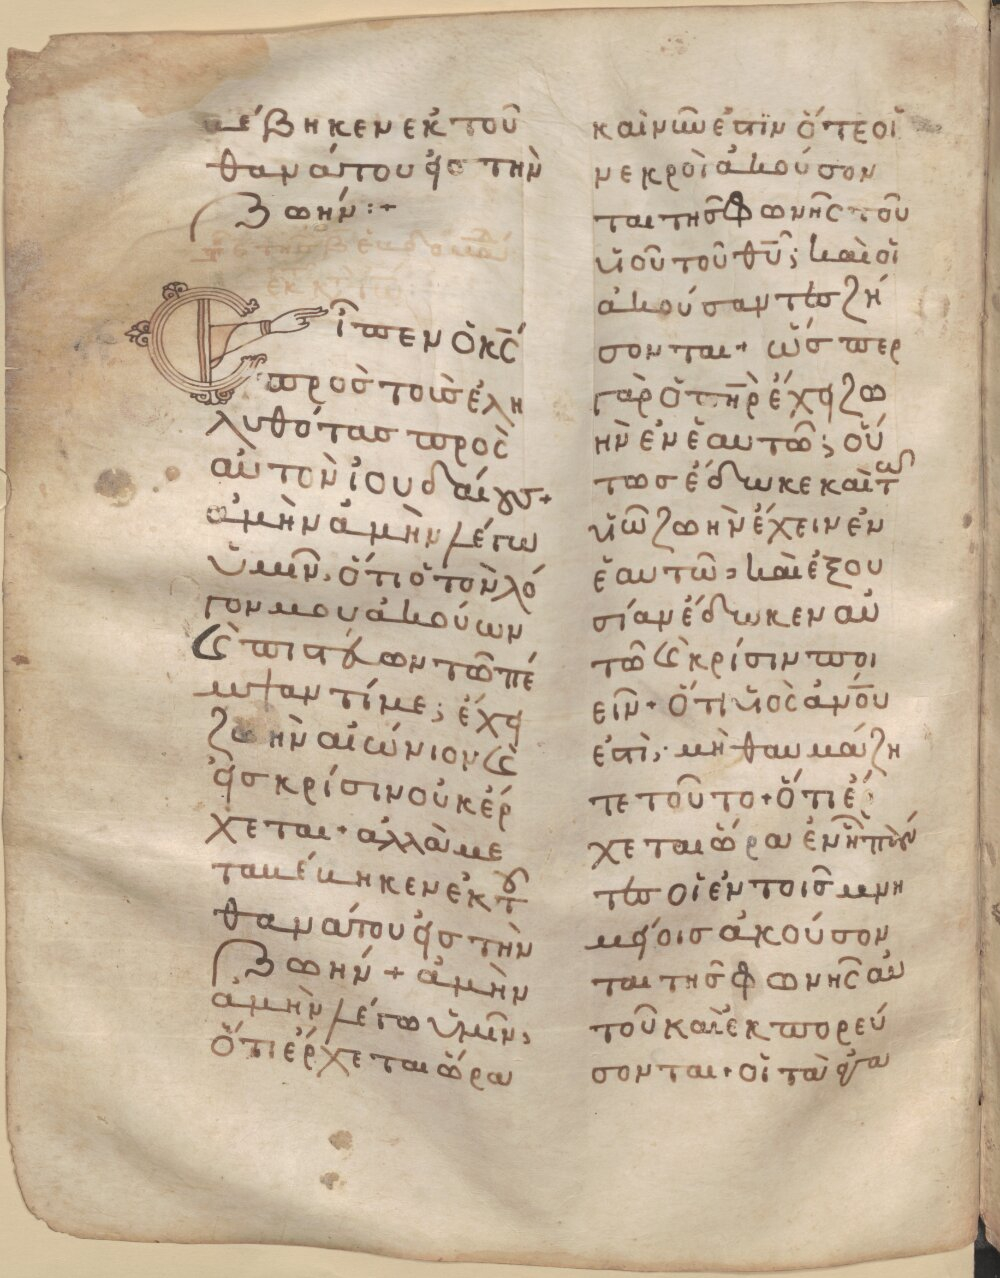 βέβηκεν ἐκ τοῦ
θανάτου εἰς τὴν
ζωήν:+
Εἶπεν ὁ κς
πρὸς τοὺς ἐλη
λυθότας πρὸς
αὐτὸν ἰουδαίους+
ἀμὴν ἀμὴν λέγω
ὑμῖν, ὅτι ὁ τὸν λό
γον μου ἀκούων
καὶ πιστεύων τῶ πέ
μψαντί με; ἔχει
ζωὴν αἰώνιον καὶ
εἰς κρίσιν οὐκ ἔρ
χεται+ ἀλλὰ με
ταβέβηκεν ἐκ τοῦ
θανάτου εἰς τὴν
ζωήν+ ἀμὴν
ἀμὴν λέγω ὑμῖν,
ὅτι ἔρχεται ὥρα
καὶ νῦν ἐστὶν ὅτε οἱ
νεκροὶ ἀκούσον
ται τῆς φωνῆς τοῦ
υἱοῦ τοῦ θυ; καὶ οἱ
ἀκούσαντες ζή
σονται+ ὥσπερ
γὰρ ὁ πηρ ἔχει ζω
ὴν ἐν ἑαυτῶ; οὕ
τως ἔδωκε καὶ τῶ
υἱῶ ζωὴν ἔχειν ἐν
ἑαυτῶ; καὶ ἐξου
σίαν ἔδωκεν αὐ
τῶ καὶ κρίσιν ποι
εῖν+ ὅτι υἱὸς ανου
ἐστί; μὴ θαυμάζη
τε τοῦτο+ ὅτι ἔρ
χεται ὥρα ἐν ἧ πάν
τες οἱ ἐν τοῖς μνη
μείοις ἀκούσον
ται τῆς φωνῆς αὐ
τοῦ καὶ ἐκπορεύ
σονται+ οἱ τὰ ἀγα